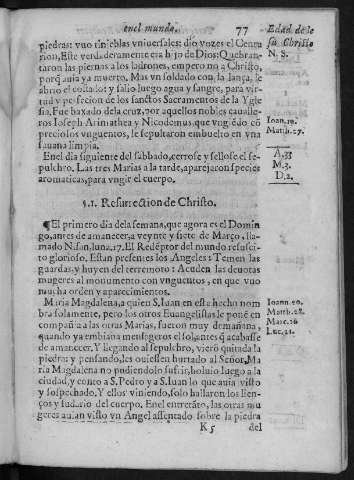 enel mundo. 77
Edad de le
su Christo
N. S.
piedras: vuo tinieblas vniuersales: dio vozes el Centu
rion, Este verdaderamente era hijo de Dios: Quebran
taron las piernas a los ladrones, empero no a Christo,
porq̃ auia ya muerto. Mas vn soldado con la lança, le
abrio el costado: y salio luego agua y sangre, para vir-
tud y perfecion de los sanctos Sacramentos de la Ygle
sia. Fue baxado dela cruz, por aquellos nobles caualle-
ros Ioseph Arimathea y Nicodemus, que vngido cõ
preciosos vnguentos, le sepultaron embuelto en vna
sauana limpia.
Ioan.19.
Matth.27.
Enel dia siguiente del sabbado, cerrose y sellose el se-
pulchro. Las tres Marias a la tarde, aparejaron species
aromaticas, para vngir el cuerpo.
A.33
M.3.
D.2.
§.1. Resurrection de Christo.
¶El primero dia dela semana, que agora es el Domin
go, antes de amanecer, a veynte y siete de Março, lla-
mado Nisan, luna.17. El Redẽptor del mundo resusci-
to glorioso. Estan presentes los Angeles: Temen las
guardas, y huyen del terremoto: Acuden las deuotas
mugeres al monumento con vnguentos, en que vuo
mucha orden y aparecimientos.
Maria Magdalena, a quien S. Iuan en este hecho nom
bra solamente, pero los otros Euangelistas le ponẽ en
compañia a las otras Marias, fueron muy demañana,
quando ya embiaua mensageros el sol, antes q̃ acabasse
de amanecer. Y llegando al sepulchro, vierõ quitada la
piedra: y pensando, les ouiessen hurtado al Señor, Ma
ria Magdalena no pudiendolo sufrir, boluio luego a la
ciudad, y conto a S. Pedro y a S. Iuan lo que auia visto
y sospechado. Y ellos viniendo, solo hallaron los lien-
ços y sudario del cuerpo. En el entretãto, las otras mu
geres auian visto vn Angel assentado sobre la piedra
Ioann.20.
Matth.28.
Marc.16
Luc.21.
K 5 del